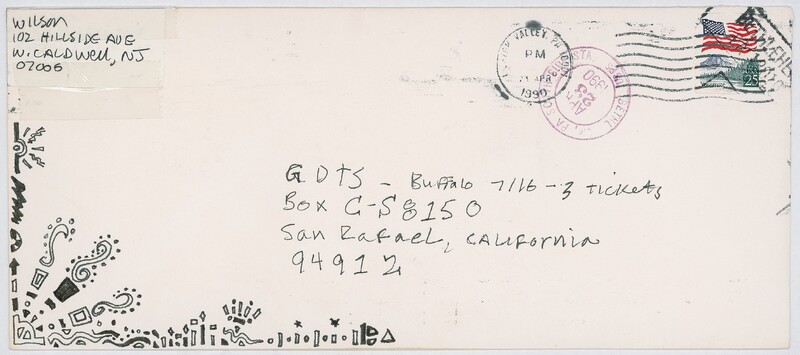 Wilson
102 HILLSIDE AVE
W. CALDWELL, NJ
07006
VALLEY, PA
PM
APR
1990
APR
23
1990
BETHL
PA
25
GDTS - Buffalo 7/16 - 3 tickets
Box C-S8150
San Rafael, CALIFORNIA
94912